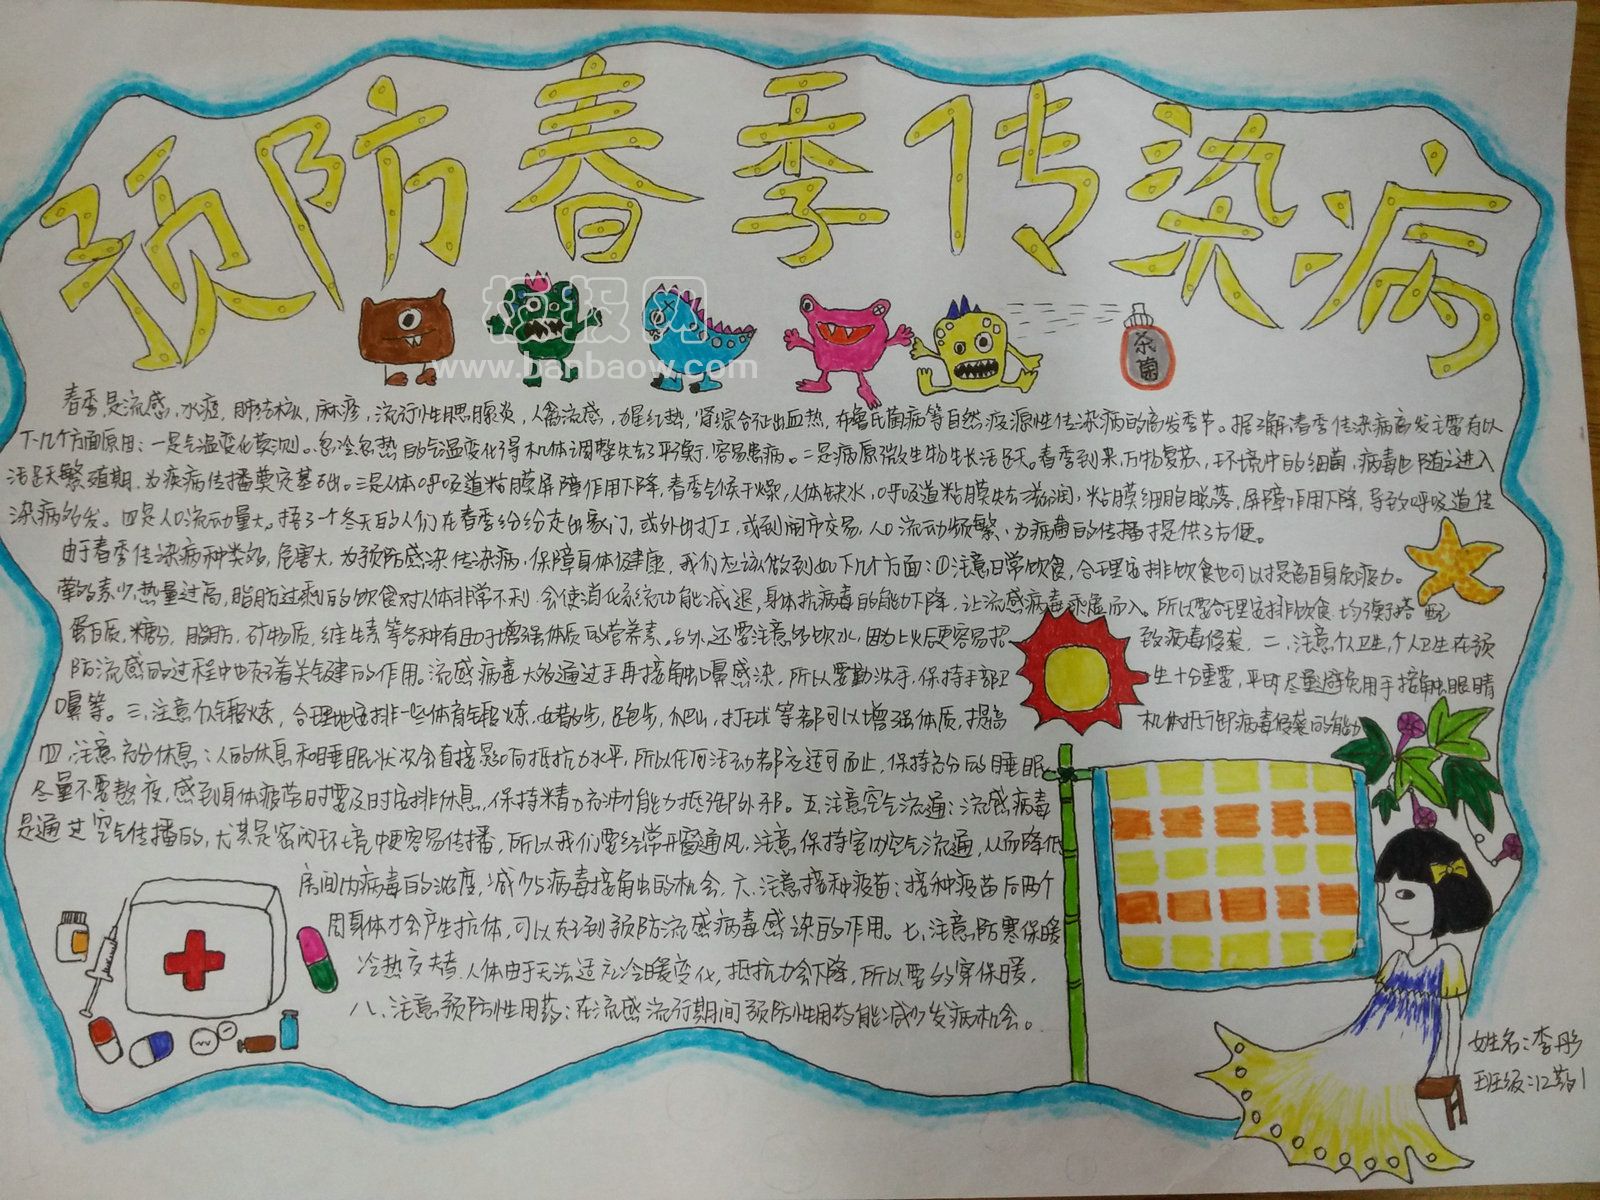 预防春季传染病
板报网
www.banbaow.com
杀菌
春季是流感，水痘，肺结核，麻疹，流行性腮腺炎，人禽流感，猩红热，肾综合征出血热，布鲁氏菌病等自然疫源性传染病的高发季节。据了解春季传染病高发主要有以
下几个方面原因：一是气温变化莫测。忽冷忽热的气温变化得机体调整失去平衡，容易患病。二是病原微生物生长活跃。春季到来，万物复苏，环境中的细菌，病毒也随之进入
活跃繁殖期，为疾病传播奠定基础。三是人体呼吸道粘膜屏障作用下降，春季气候干燥，人体缺水，呼吸道粘膜失去滋润，粘膜细胞脱落，屏障作用下降，导致呼吸道传
染病多发。四是人口流动量大。捂了一个冬天的人们在春季纷纷走出家门，或外出打工，或到闹市交易，人口流动频繁、为病菌的传播提供了方便。
由于春季传染病种类多，危害大，为预防感染传染病，保障身体健康，我们应该做到如下几个方面：①注意日常饮食，合理安排饮食也可以提高自身免疫力。
营养素少，热量过高，脂肪过剩的饮食对人体非常不利，会使消化系统功能减退，身体抗病毒的能力下降，让流感病毒乘虚而入。所以要合理安排饮食，均衡搭配
蛋白质，糖分，脂肪，矿物质，维生素等各种有助于增强体质的营养素。另外，还要注意多饮水，因为上火后更容易招致病毒侵袭，二、注意个人卫生，个人卫生在预
防流感的过程中也有着关键的作用。流感病毒大多通过手再接触口鼻感染，所以要勤洗手，保持手部卫生十分重要，平时尽量避免用手接触眼睛
口鼻等。三，注意多锻炼，合理地安排一些体育锻炼，如散步，跑步，爬山，打球等都可以增强体质，提高机体抵御病毒侵袭的能力
四、注意充分休息：人的休息和睡眠状况会直接影响抵抗力水平，所以任何活动都应适可而止，保持充分的睡眠
尽量不要熬夜，感到身体疲劳时要及时安排休息，保持精力充沛才能力抵御外邪。五、注意空气流通：流感病毒
是通过空气传播的，尤其是密闭环境中更容易传播，所以我们要经常开窗通风，注意保持室内空气流通，从而降低
房间内病毒的浓度，减少与病毒接触的机会，六、注意接种疫苗：接种疫苗后两个
周身体才会产生抗体，可以起到预防流感病毒感染的作用。七、注意防寒保暖
冷热交替，人体由于无法适应冷暖变化，抵抗力会下降，所以要多穿保暖，
八、注意预防性用药：在流感流行期间预防性用药能减少发病机会。
姓名：李彤
班级：12药1